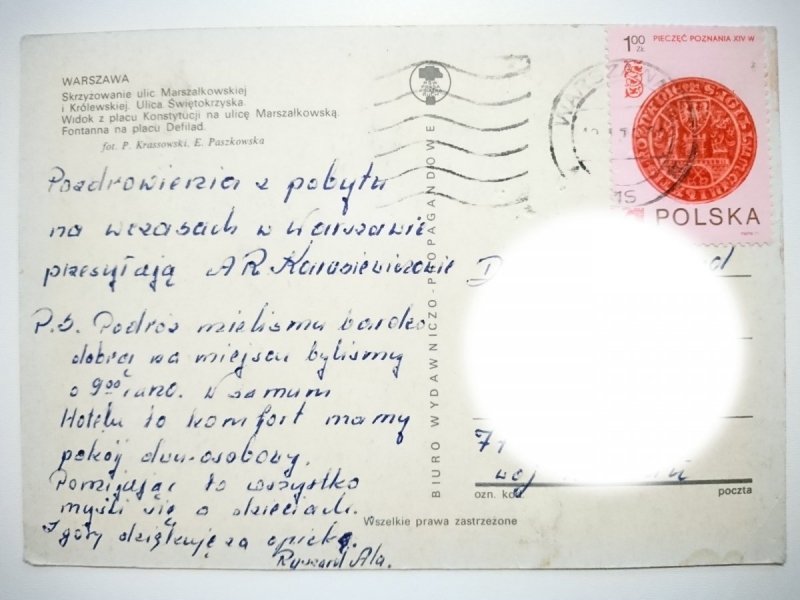 WARSZAWA
Skrzyżowanie ulic Marszałkowskiej
i Królewskiej. Ulica Świętokrzyska.
Widok z placu Konstytucji na ulicę Marszałkowską.
Fontanna na placu Defilad.
fot. P. Krassowski, E. Paszkowska
Pozdrowienia z pobytu
na wczasach w Warszawie
przesyłają AR. Karasiewiczowie
P.S. Podróż mieliśmy bardzo
dobrą na miejscu byliśmy
o 9.00 rano. W samum
Hotelu to komfort mamy
pokój dwu-osobowy.
Pomijając to wszystko
myśli się o dzieciach.
Z góry dziękuję za opiekę.
Ryszard Ala.
BIURO WYDAWNICZO-PROPAGANDOWE
1.00 ZŁ
PIECZĘĆ POZNANIA XIV W
POLSKA
WARSZAWA
D
7
woj
ozn. kod
poczta
Wszelkie prawa zastrzeżone